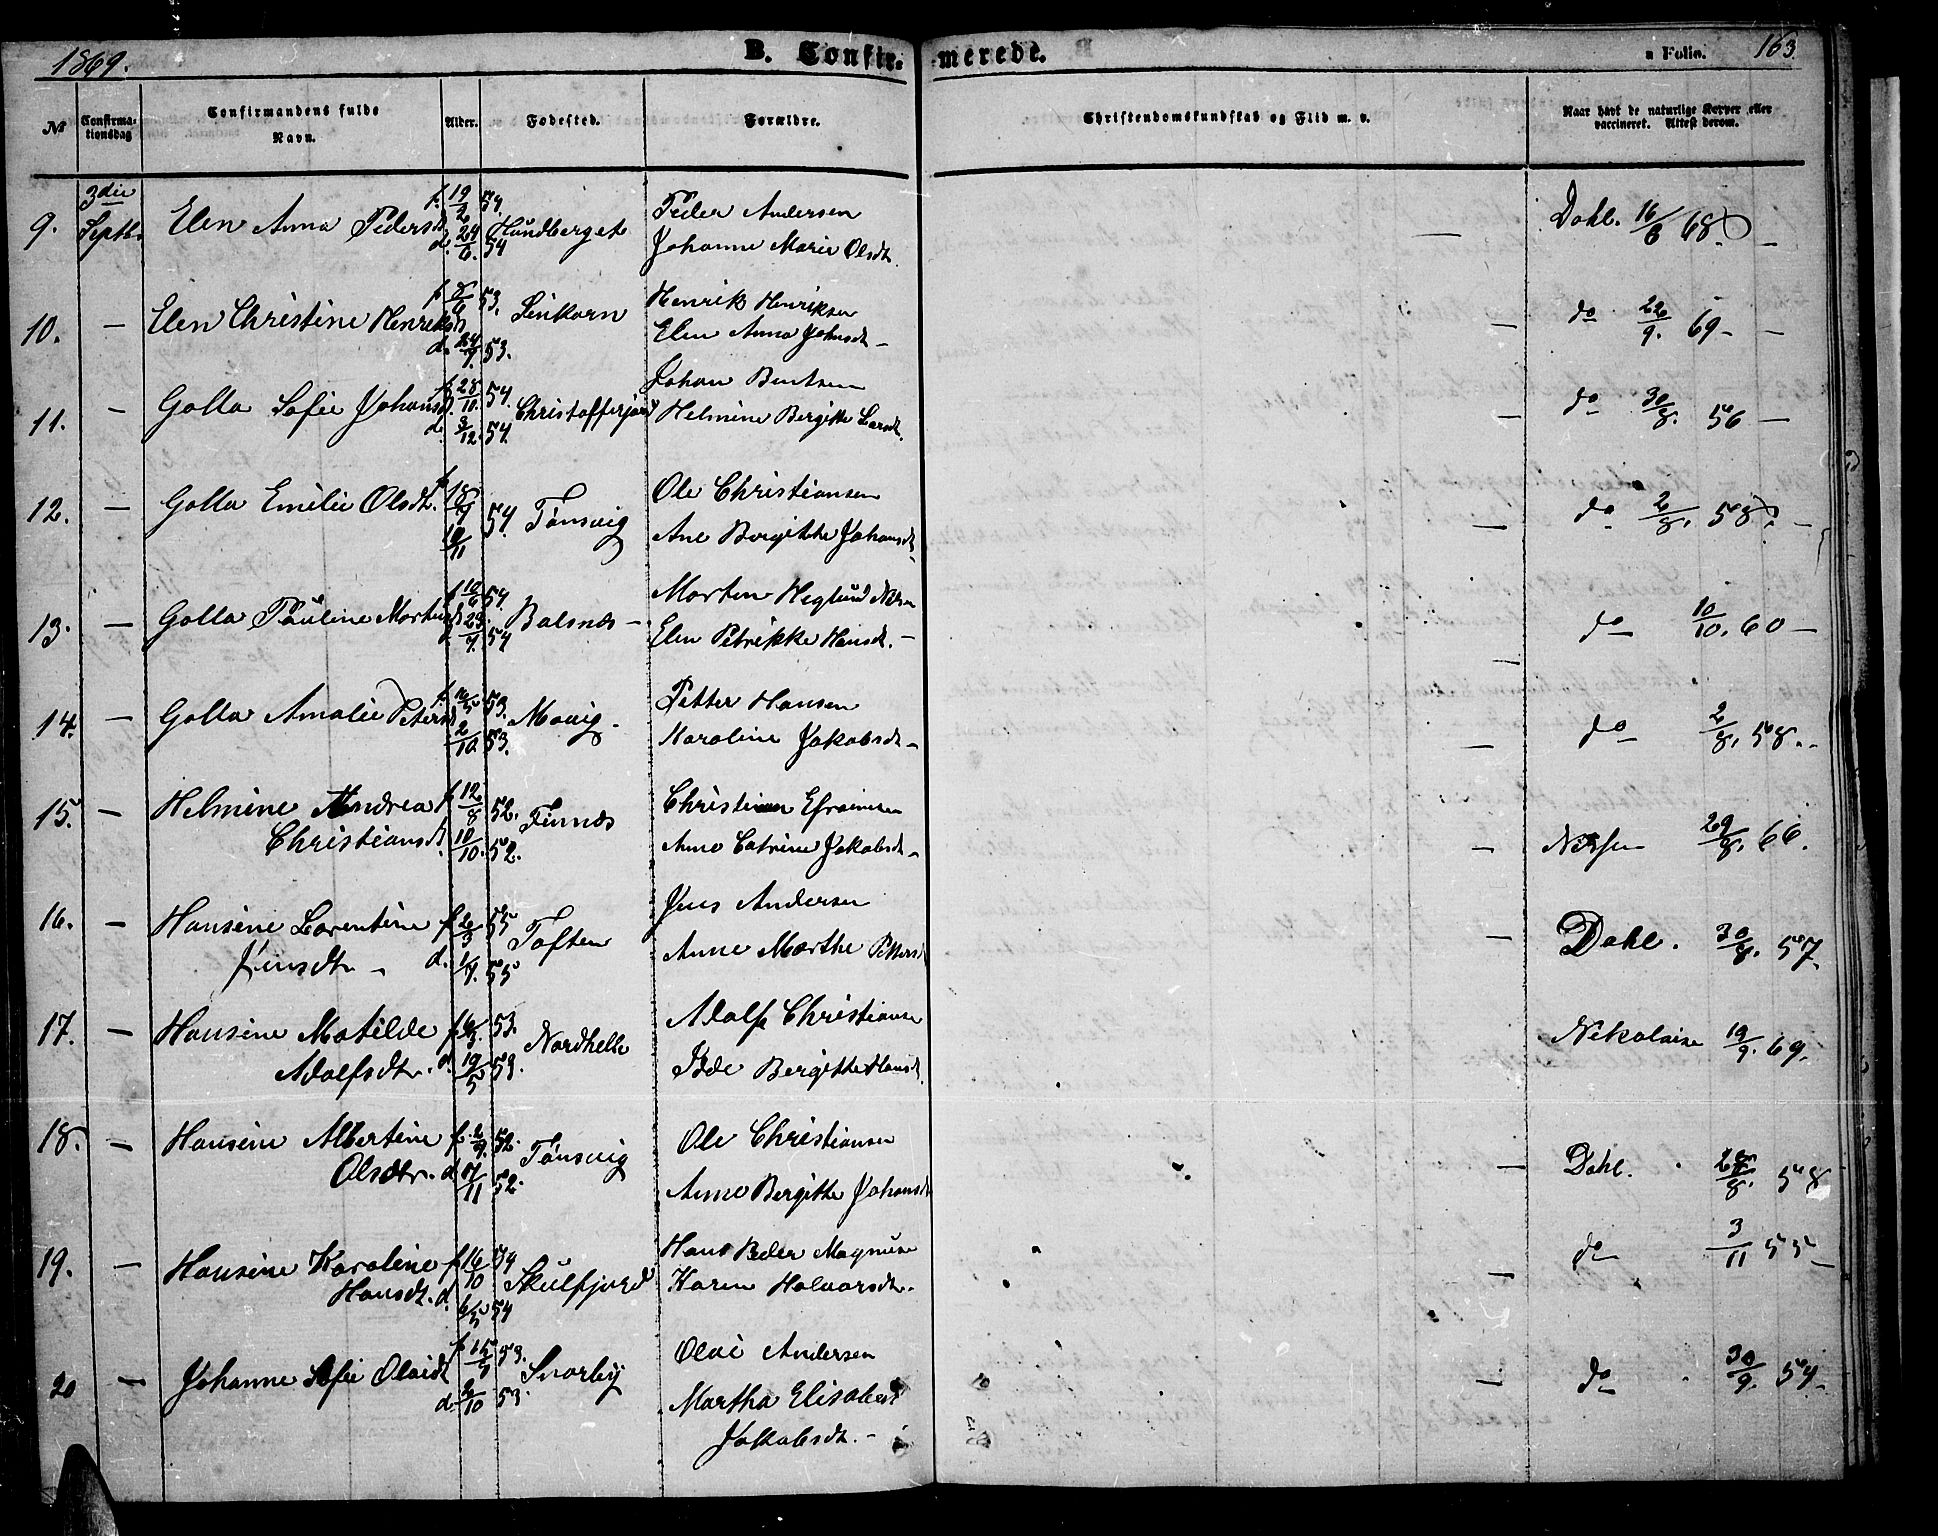 1869.
B. Confirmerede.
a Folio. 163
No
Confirma-
tionsdag
Confirmandens fulde
Navn.
Alder.
Fødested.
Forældre.
Christendomskundskab og Flid m. v.
Naar havt de naturlige Kopper eller
vaccineret. Attest derom.
9. 3die Septb. Elen Anna Pedersd. f. 19/2 54. d. 24/6. 54 Hundberget Peder Andersen
Johanne Marie Olsdt. — Dahl. 16/6 68. —
10. — Elen Christine Henriksd f. 8/6 53. d. 24/9. 53. Henrik Henriksen
Elen Anna Johnsdt — — do 22/9. 69 —
11. — Golla Sofie Johansd. f. 28/10. 54. d. 3/12. 54. Christofferjord Johan Bentsen
Helmine Bergitte Larsdt. — do 30/8. 56 —
12. — Golla Emilie Olsdt. f. 18/9 54. 19/11 Tønsvig Ole Christiansen
Ane Bergitthe Johansdt — do 2/8. 58. —
13. — Golla Pauline Mortensd f. 10/6 54. d. 23/7. 54 Balsnæs — Morten Heglund
Elen Petrikke Hansdt. — — do 10/10. 60 —
14. — Golla Amalie Petersd f. 53. 2/10. 53. Mavig. Petter Hansen
Karoline Jakobsdt — — do 2/8. 58. —
15. — Helmine Andrea
Christiansd. f. 12/8 52. 10/10. 52. Finnæs Christian Efraimsen
Anne Catrine Jakobsdt — — 29/8. 66.
16. — Hansine Lorentine
Jensdt — f. 2/3 55 d. 1/7. 55 Toften Jens Andersen
Anne Marthe Pettersd — Dahl. 30/8. 57.
17. — Hansine Matilde
Adolfsdt. f. 53. d. 19/5 53. Nordhella Adolf Christiansen
Bergitte Hansdt. Nikolaise 19/9. 69.
18. — Hansine Albertine
Olsdtr. f. 2/9. 52. d. 7/11 52. Tønsvig Ole Christiansen
Anne Bergitte Johansdt — Dahl. 58
19. — Hansine Karoline
Hansdt. f. 16/10 d. 54 Skulfjord Hans Peder Magnus
Karen Halvorsdt. — do 3/11 55 —
20 — Johanne Sofie Olaisdt f. 15/7 53. d. 2/10 53. Snorby Olai Andersen
Martha Elisabeth
Jakobsdt. — — do 30/9. 54 —